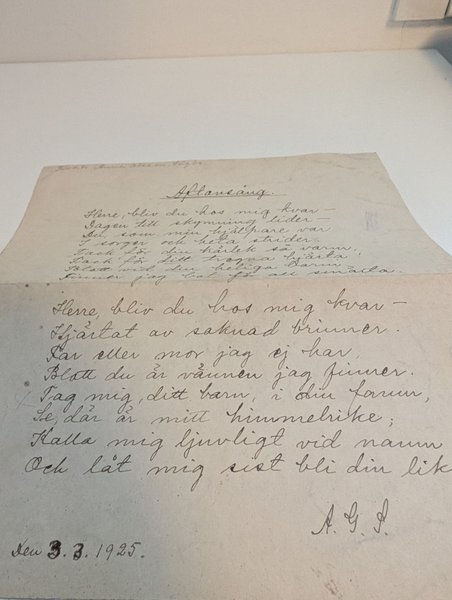 Aftonsång.
Herre, bliv du hos mig kvar –
Dagen till skymning lider –
Du som min hjälpare var
I sorger och heta strider.
Tack för din kärlek så varm,
Tack för ditt trogna hjärta
Blott vid din heliga barm
finner jag bot för all smärta.
Herre, bliv du hos mig kvar –
Hjärtat av saknad brinner.
Far eller mor jag ej har,
Blott du är vännen jag finner.
Tag mig, ditt barn, i din famn,
Se, där är mitt himmelrike;
Kalla mig ljuvligt vid namn
Och låt mig sist bli din lik
A. G. S.
Den 3. 3. 1925.